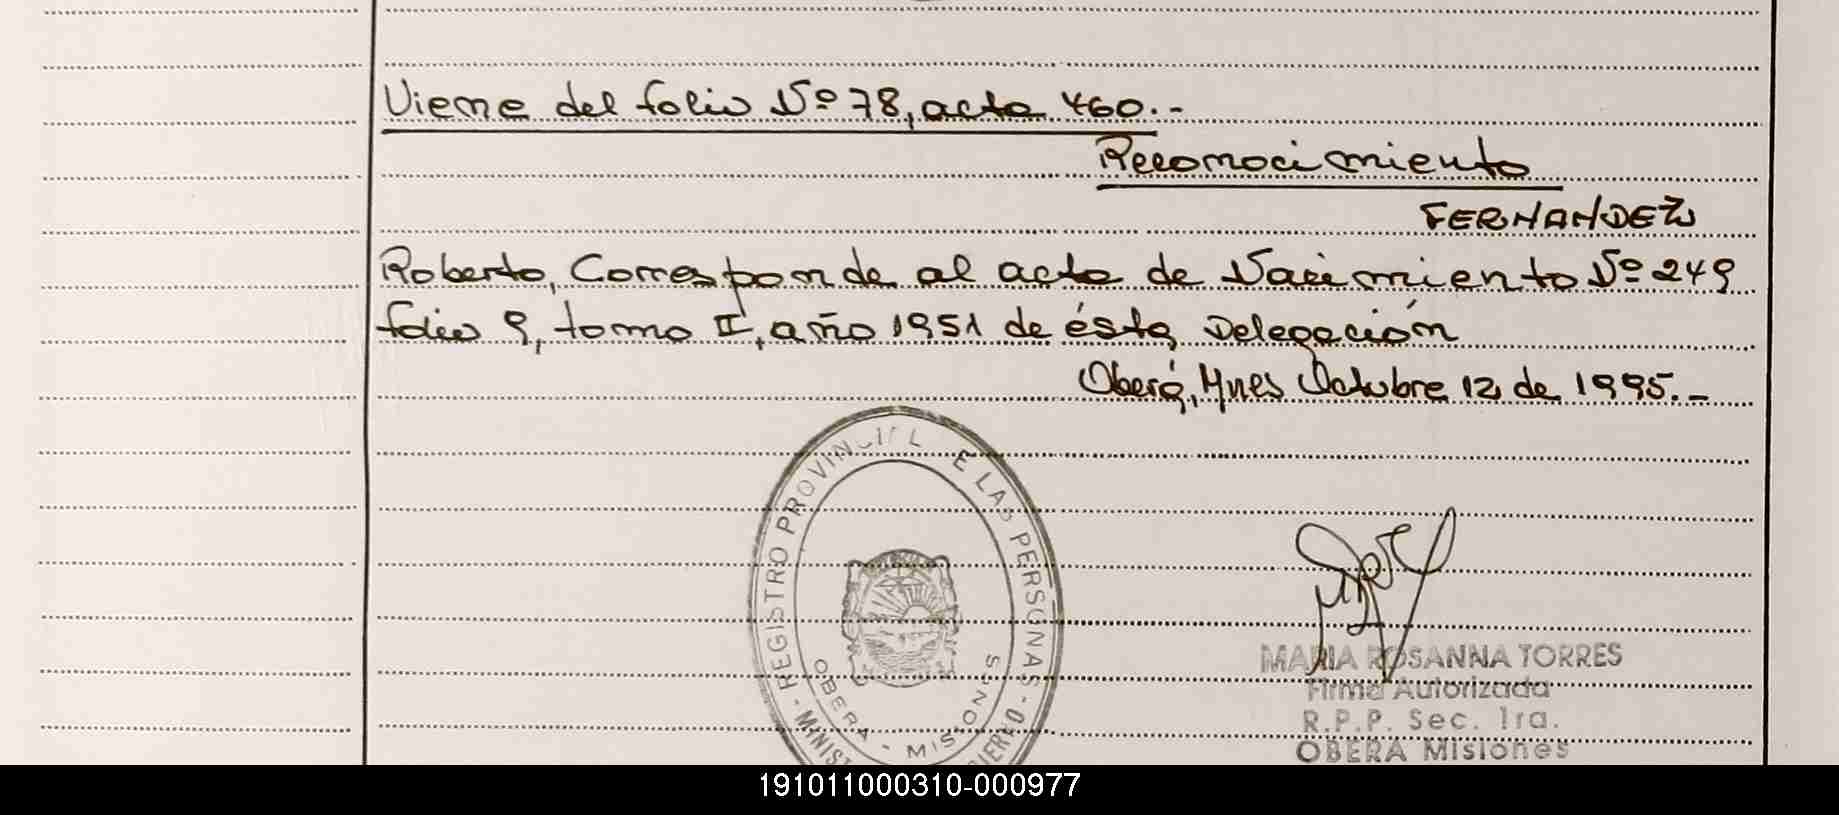 Viene del folio Nº 78, acta 460.-
Reconocimiento
FERNANDEZ
Roberto, Corresponde al acta de Nacimiento Nº 249
folio 9, tomo II, año 1951 de ésta Delegación
Oberá, Mnes Octubre 12 de 1995.-
REGISTRO PROVINCIAL E LAS PERSONAS -
OBERA - MISIONES
MARIA ROSANNA TORRES
Firma Autorizada
R.P.P. Sec. 1ra.
OBERA Misiones
191011000310-000977